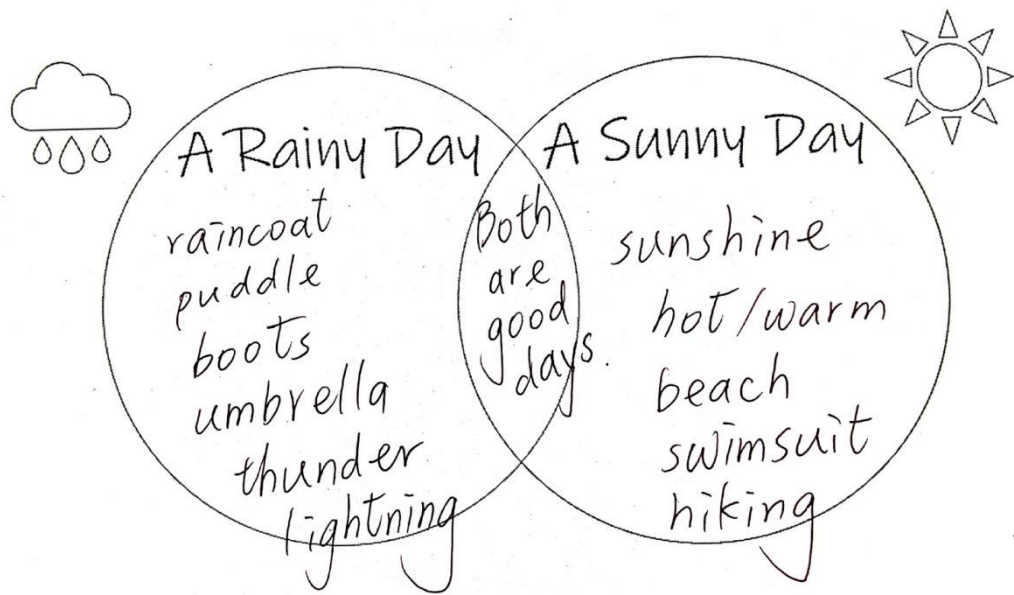 A Rainy Day
raincoat
puddle
boots
umbrella
thunder
lightning
Both
are
good
days.
A Sunny Day
sunshine
hot/warm
beach
swimsuit
hiking